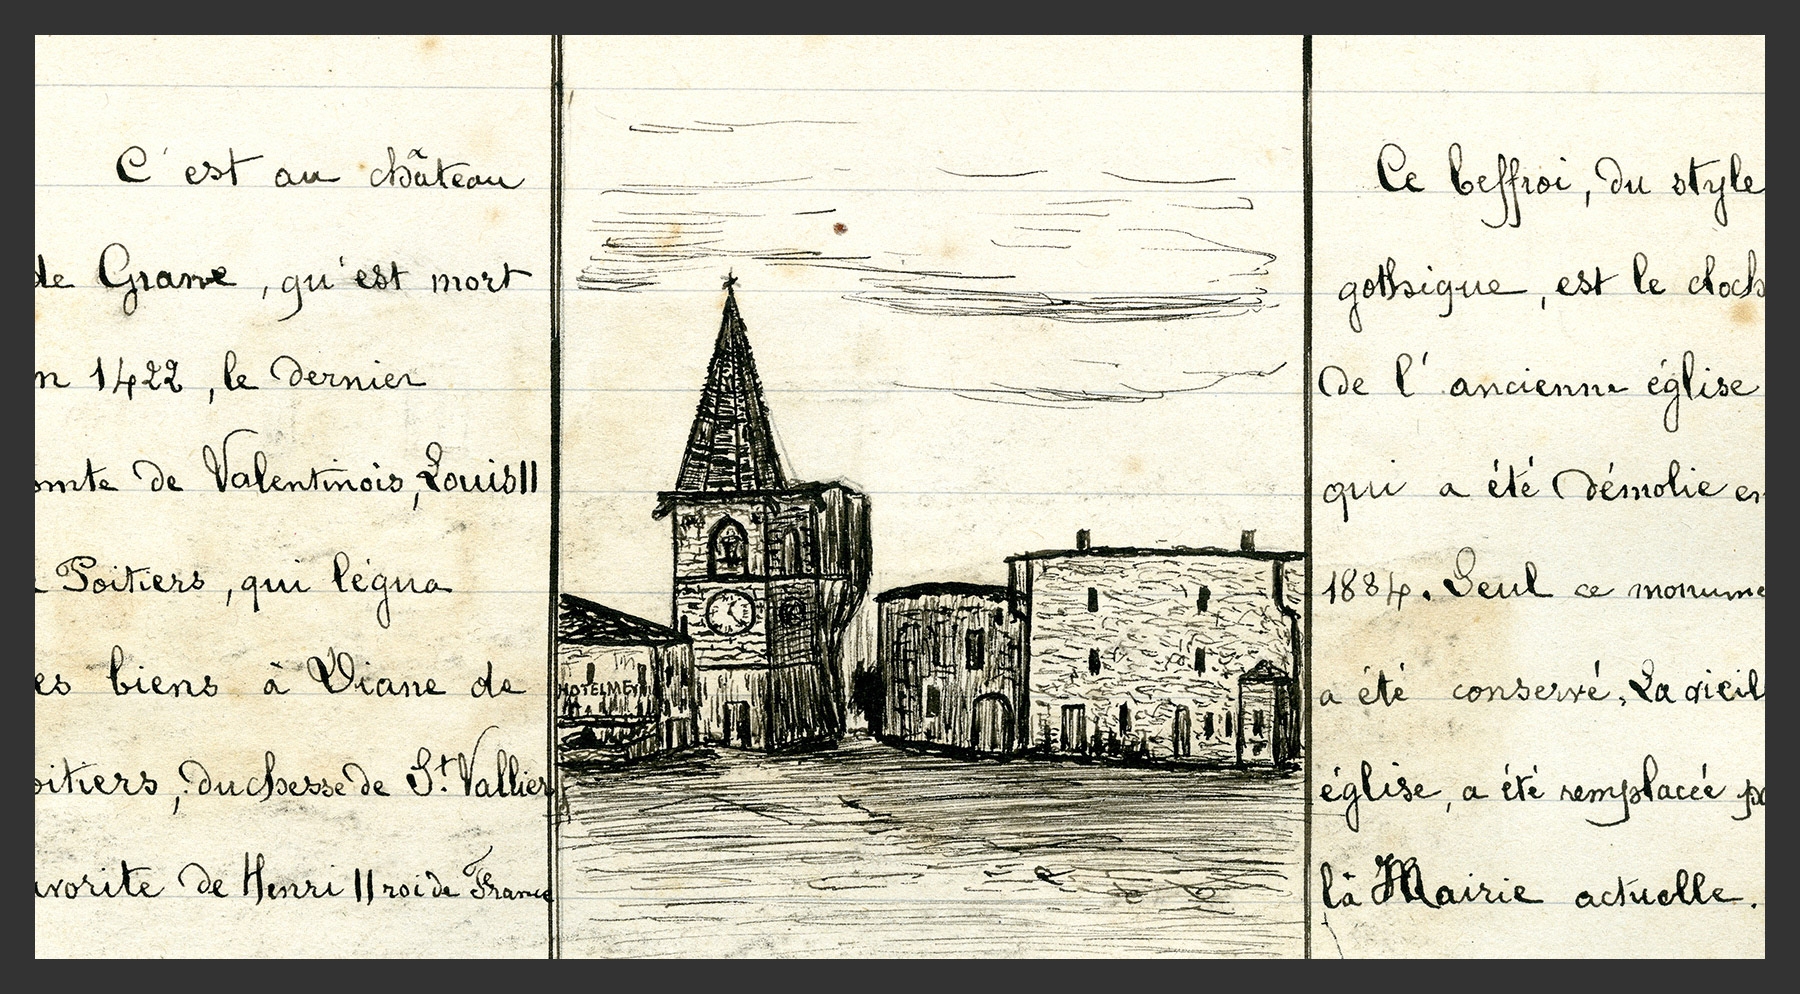 C'est au château
de Grane, qu'est mort
n 1422, le dernier
omte de Valentinois, Louis II
Poitiers, qui légua
es biens à Diane de
oitiers, duchesse de St. Vallier
avorite de Henri II roi de France
HOTEL MEY
Ce beffroi, du style
gothique, est le cloch
de l'ancienne église
qui a été démolie en
1884. Seul ce monume
a été conservé. La vieil
église, a été remplacée pa
là Mairie actuelle.